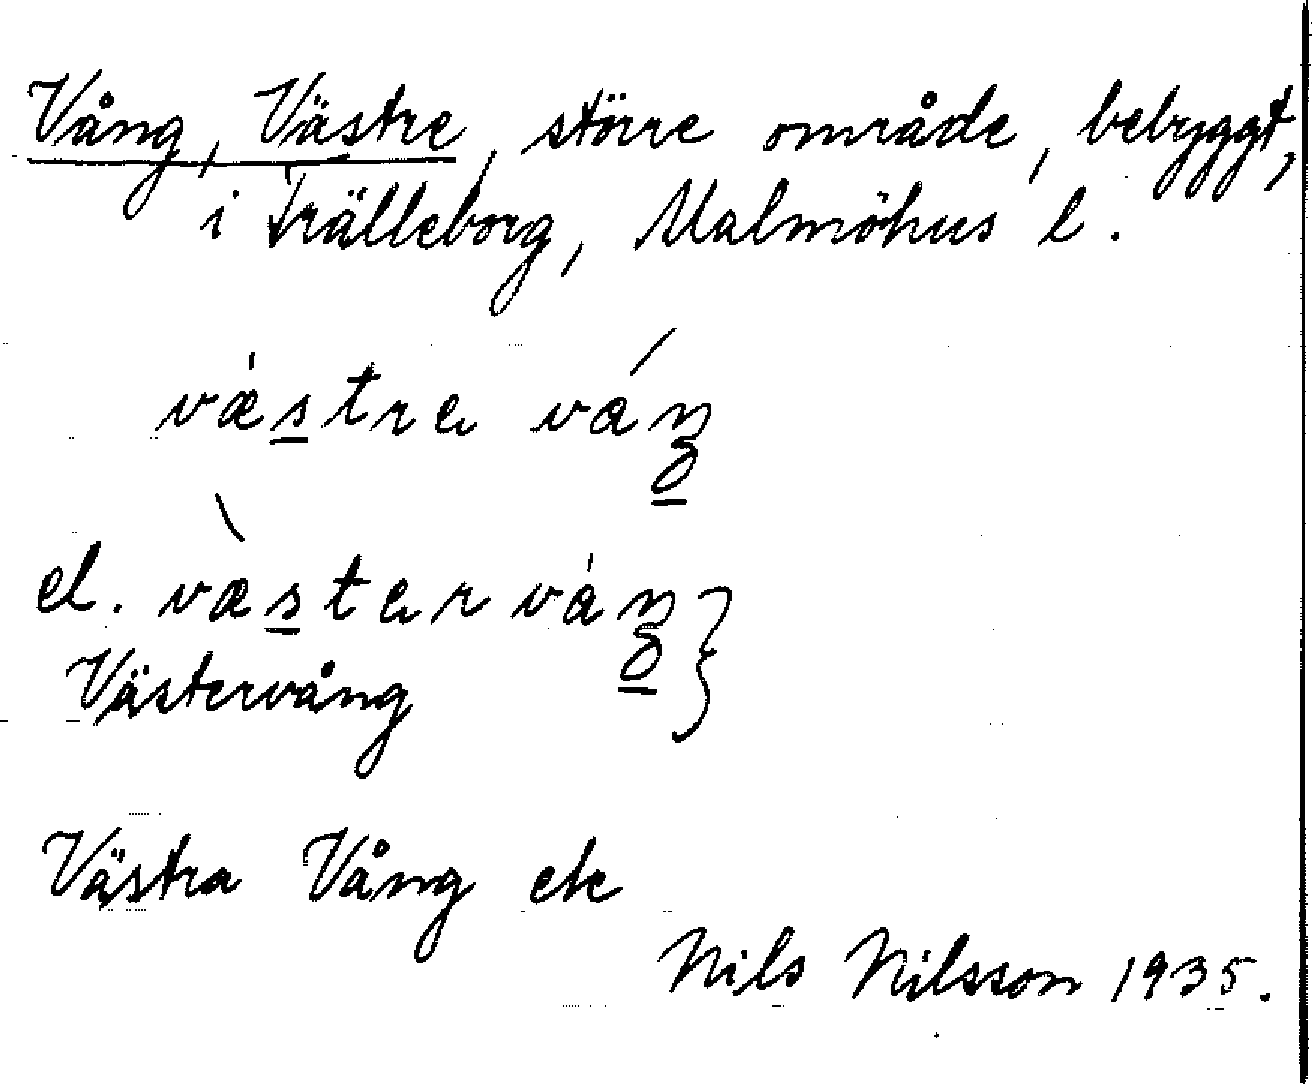 Vång, Västre, större område, bebyggt,
i Trälleborg, Malmöhus l.
væ̀stre váŋ
el. væ̀stervåŋ }
Västervång
Västra Vång etc
Nils Nilsson 1935.